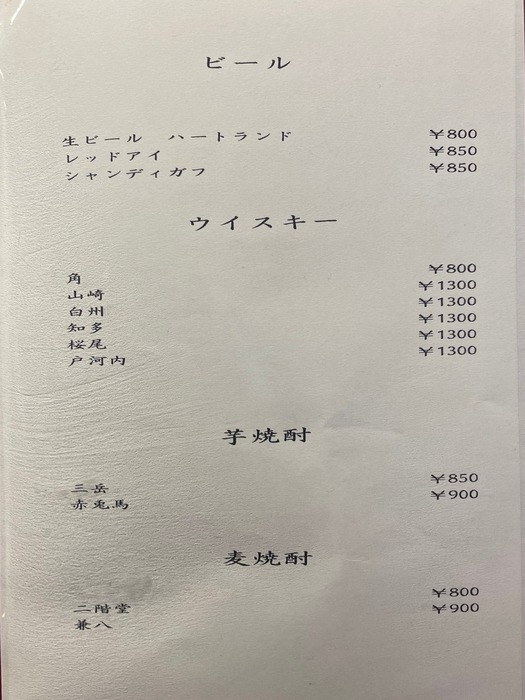 ビール
生ビール　ハートランド ￥800
レッドアイ ￥850
シャンディガフ ￥850
ウイスキー
角 ￥800
山崎 ￥1300
白州 ￥1300
知多 ￥1300
桜尾 ￥1300
戸河内 ￥1300
芋焼酎
三岳 ￥850
赤兎馬 ￥900
麦焼酎
二階堂 ￥800
兼八 ￥900